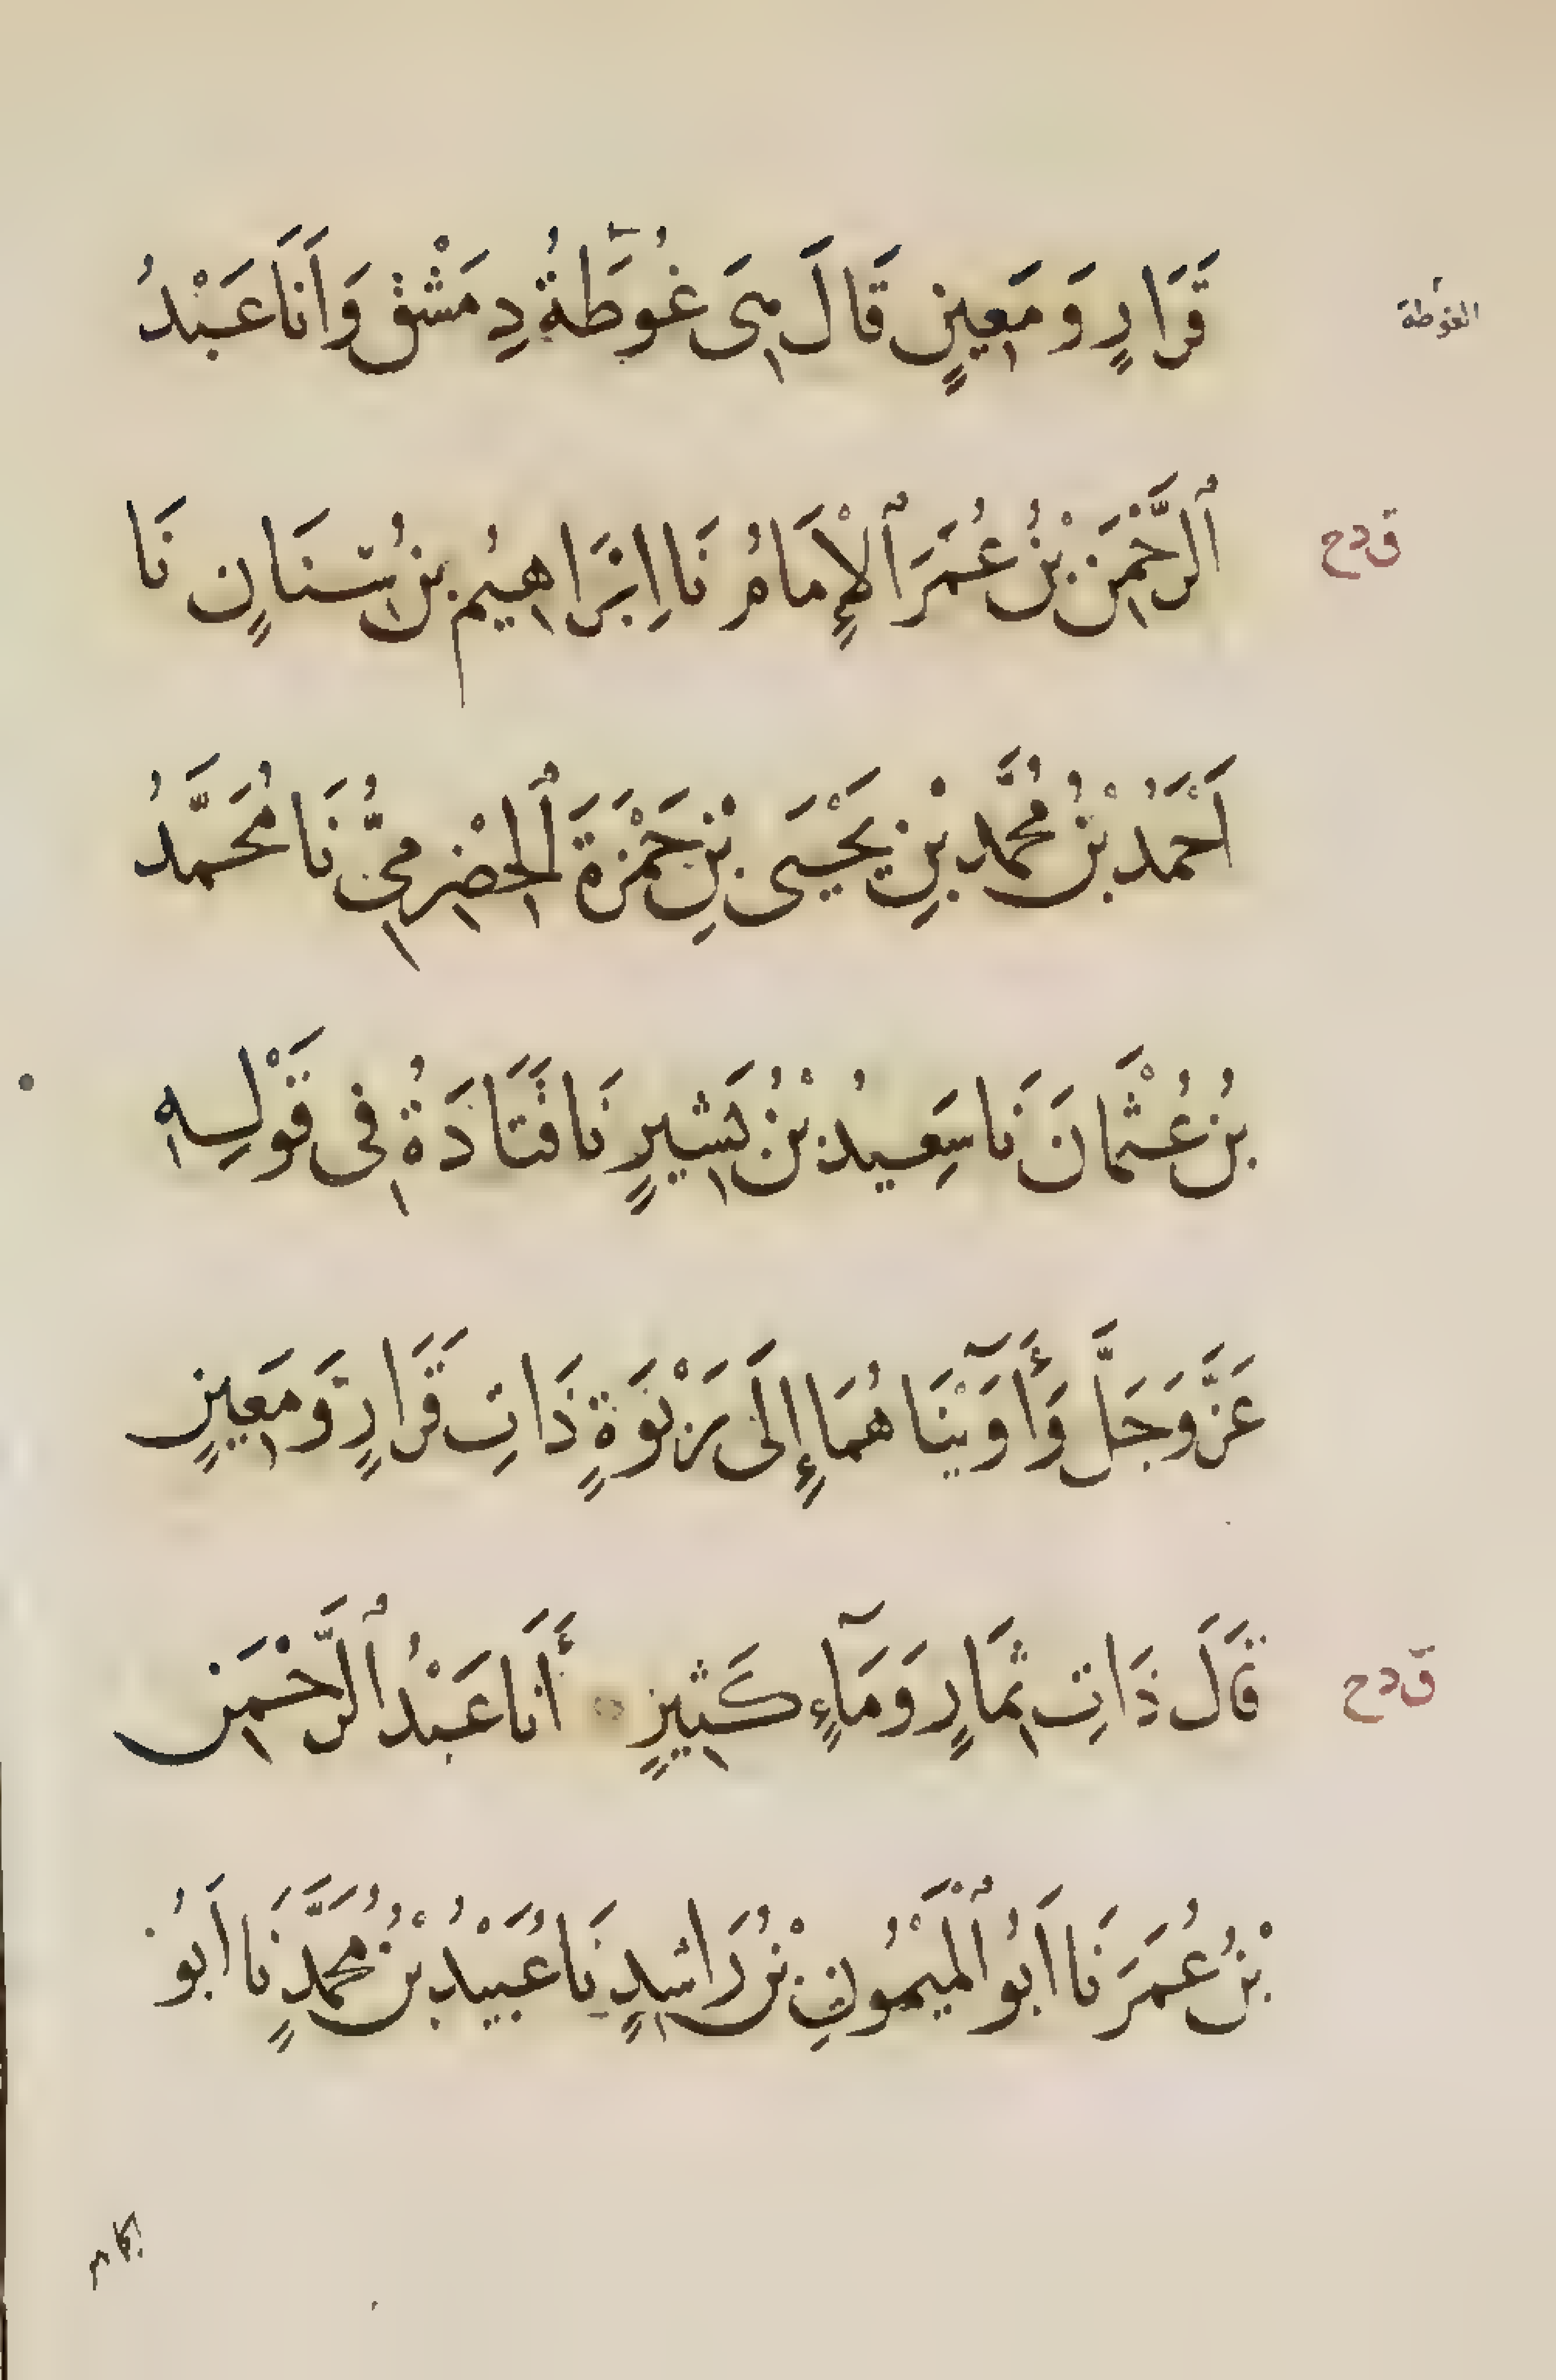 قَرَارٍ وَمَعِينٍ قَالَ هِىَ غُوطَةُ دِمَشْقَ وَاَنَا عَبْدُ
الغوطة
ٱلرَّحْمٰنِ بْنُ عُمَرَ ٱلْإِمَامُ نَا اِبْرَاهِيمُ بْنُ سِنَانٍ نَا
ق د ح
اَحْمَدُ بْنُ مُحَمَّدِ بْنِ يَحْيَى بْنِ حَمْزَةَ ٱلْحَضْرَمِىُّ نَا مُحَمَّدُ
بْنُ عُثْمَانَ نَا سَعِيدُ بْنُ بَشِيرٍ نَا قَتَادَةُ فِى قَوْلِهِ
عَزَّ وَجَلَّ وَأٰوَيْنَاهُمَا إِلَى رَبْوَةٍ ذَاتِ قَرَارٍ وَمَعِينٍ
قَالَ ذَاتِ ثِمَارٍ وَمَآءٍ كَثِيرٍ أَنَا عَبْدُ ٱلرَّحْمٰنِ
ق د ح
بْنُ عُمَرَ نَا اَبُو ٱلْمَيْمُونِ بْنُ رَاشِدٍ نَا عُبَيْدُ بْنُ مُحَمَّدٍ نَا اَبُو